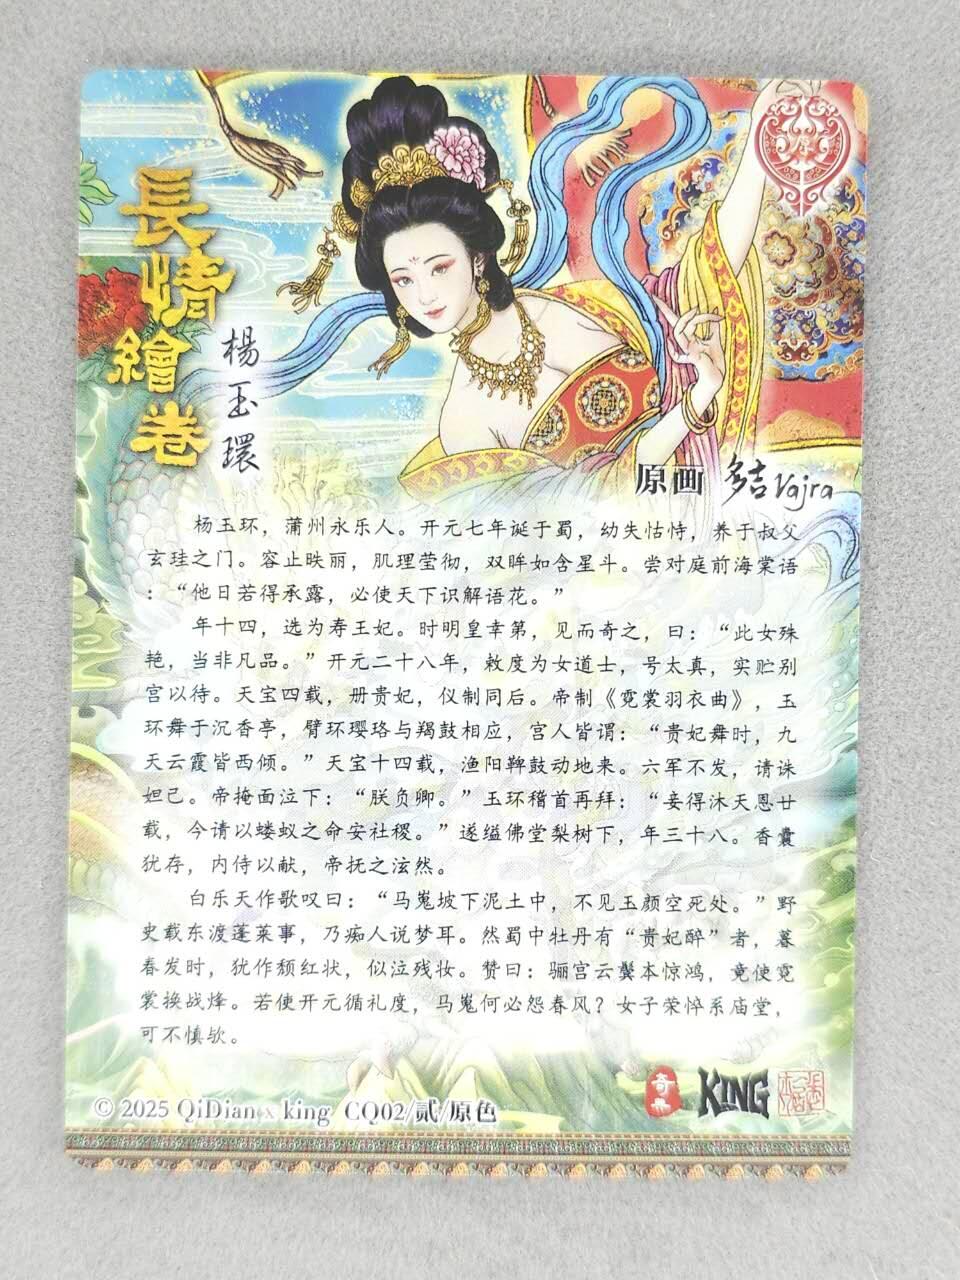 長情繪卷
楊玉環
原画 多吉 Vajra
杨玉环，蒲州永乐人。开元七年诞于蜀，幼失怙恃，养于叔父
玄珪之门。容止昳丽，肌理莹彻，双眸如含星斗。尝对庭前海棠语
：“他日若得承露，必使天下识解语花。”
年十四，选为寿王妃。时明皇幸第，见而奇之，曰：“此女殊
艳，当非凡品。”开元二十八年，敕度为女道士，号太真，实贮别
宫以待。天宝四载，册贵妃，仪制同后。帝制《霓裳羽衣曲》，玉
环舞于沉香亭，臂环璎珞与羯鼓相应，宫人皆谓：“贵妃舞时，九
天云霞皆西倾。”天宝十四载，渔阳鞞鼓动地来。六军不发，请诛
妲己。帝掩面泣下：“朕负卿。”玉环稽首再拜：“妾得沐天恩廿
载，今请以蝼蚁之命安社稷。”遂缢佛堂梨树下，年三十八。香囊
犹存，内侍以献，帝抚之泫然。
白乐天作歌叹曰：“马嵬坡下泥土中，不见玉颜空死处。”野
史载东渡蓬莱事，乃痴人说梦耳。然蜀中牡丹有“贵妃醉”者，暮
春发时，犹作颓红状，似泣残妆。赞曰：骊宫云鬓本惊鸿，竟使霓
裳换战烽。若使开元循礼度，马嵬何必怨春风？女子荣悴系庙堂，
可不慎欤。
KING
© 2025 QiDian x king CQ02/贰/原色